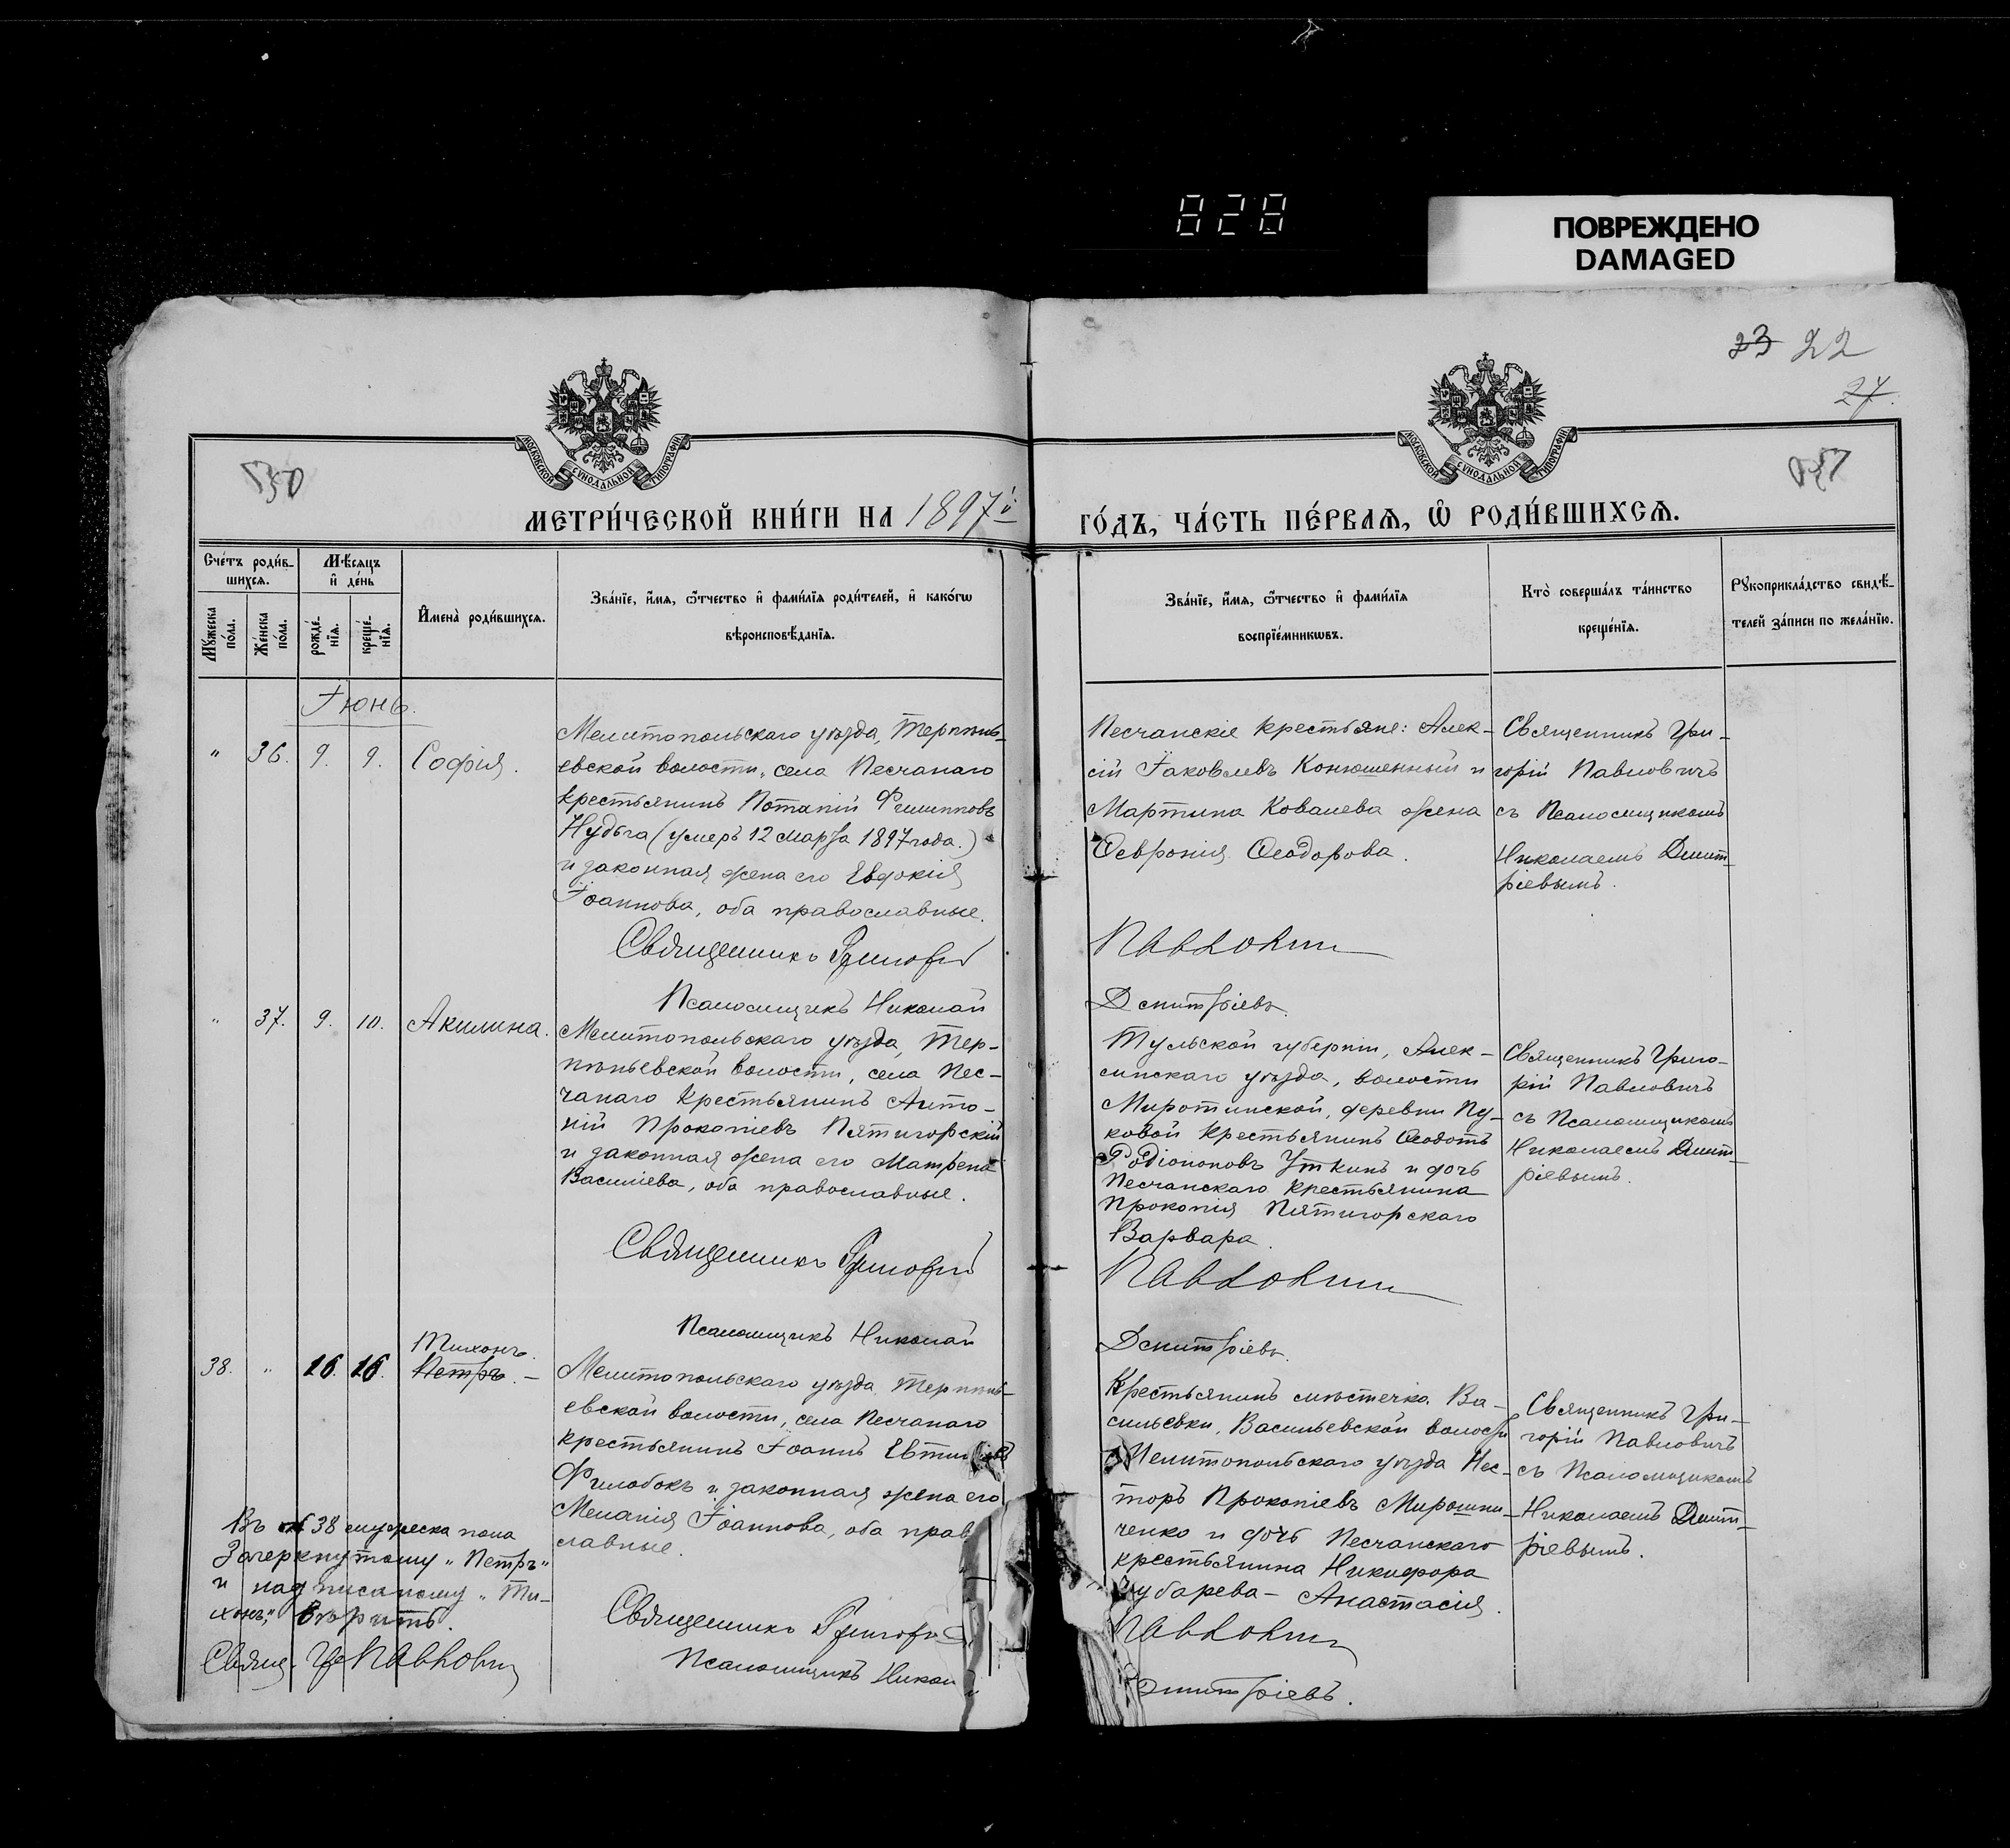 828
ПОВРЕЖДЕНО
DAMAGED
23 22
27.
МОСКОВСКОЙ СѴНОДАЛЬНОЙ ТИПОГРАФІИ
МОСКОВСКОЙ СѴНОДАЛЬНОЙ ТИПОГРАФІИ
МЕТРИ́ЧЕСКОЙ КНИ́ГИ НА 1897й
ГО́ДЪ, ЧА́СТЬ ПЕ́РВАѦ, Ѡ҆ РОДИ́ВШИХСѦ.
Сче́тъ роди́в-
шихсѧ.
Мѣ́сѧцъ
и҆ де́нь
Мꙋ́жеска по́ла.
Же́нска по́ла.
рожде́-
нїѧ.
креще́-
нїѧ.
И҆мена̀ роди́вшихсѧ.
Зва́нїе, и҆́мѧ, ѻ҆́тчество и҆ фами́лїѧ роди́телей, и҆ како́гѡ
вѣроисповѣ́данїѧ.
Зва́нїе, и҆́мѧ, ѻ҆́тчество и҆ фами́лїѧ
воспрїе́мникѡвъ.
Кто̀ соверша́лъ та́инство
креще́нїѧ.
Рꙋкоприкла́дство свидѣ́-
телей за́писи по жела́нїю.
Іюнь.
" 36. 9. 9. Софія.
Мелитопольскаго уѣзда, Терпѣнь-
евской волости, села Песчанаго
крестьянинъ Потапій Филипповъ
Нудьга (умеръ 12 марта 1897 года.)
и законная жена его Евдокія
Іоаннова, оба православные.
Священникъ Григорій
Псаломщикъ Николай
Песчанскіе крестьяне: Алек-
сій Іаковлевъ Конюшенный и
Мартина Ковалева жена
Ѳевронія Ѳеодорова.
Павловичъ
Дмитріевъ.
Священникъ Гри-
горій Павловичъ
съ Псаломщикомъ
Николаемъ Дмит-
ріевымъ.
" 37. 9. 10. Акилина.
Мелитопольскаго уѣзда, Тер-
пѣньевской волости, села Пес-
чанаго крестьянинъ Анто-
ній Прокопіевъ Пятигорскій
и законная жена его Матрена
Василіева, оба православные.
Священникъ Григорій
Псаломщикъ Николай
Тульской губерніи, Алек-
синскаго уѣзда, волости
Миротинской, деревни Пу-
ковой крестьянинъ Ѳеодотъ
Родіоновъ Уткинъ и дочь
Песчанскаго крестьянина
Прокопія Пятигорскаго
Варвара.
Павловичъ
Дмитріевъ.
Священникъ Григо-
рій Павловичъ
съ Псаломщикомъ
Николаемъ Дмит-
ріевымъ.
Тихонъ.
38. " 16. 16. Петръ. -
Мелитопольскаго уѣзда, Терпѣнь-
евской волости, села Песчанаго
крестьянинъ Іоаннъ
Филобокъ и законная жена его
Меланія Іоаннова, оба прав
славные.
Священникъ Григорі
Псаломщикъ Никол
Крестьянинъ мѣстечка Ва-
сильевки, Васильевской волости
Мелитопольскаго уѣзда Нес-
торъ Прокопіевъ Мирошни-
ченко и дочь Песчанскаго
крестьянина Никифора
Зубарева - Анастасія.
Павловичъ
Дмитріевъ.
Священникъ Гри-
горій Павловичъ
съ Псаломщикомъ
Николаемъ Дмит-
ріевымъ.
Въ № 38 мужеска пола
Зачеркнутому "Петръ"
и надписаному "Ти-
хонъ" вѣрить.
Свящ. Гр Павловичъ